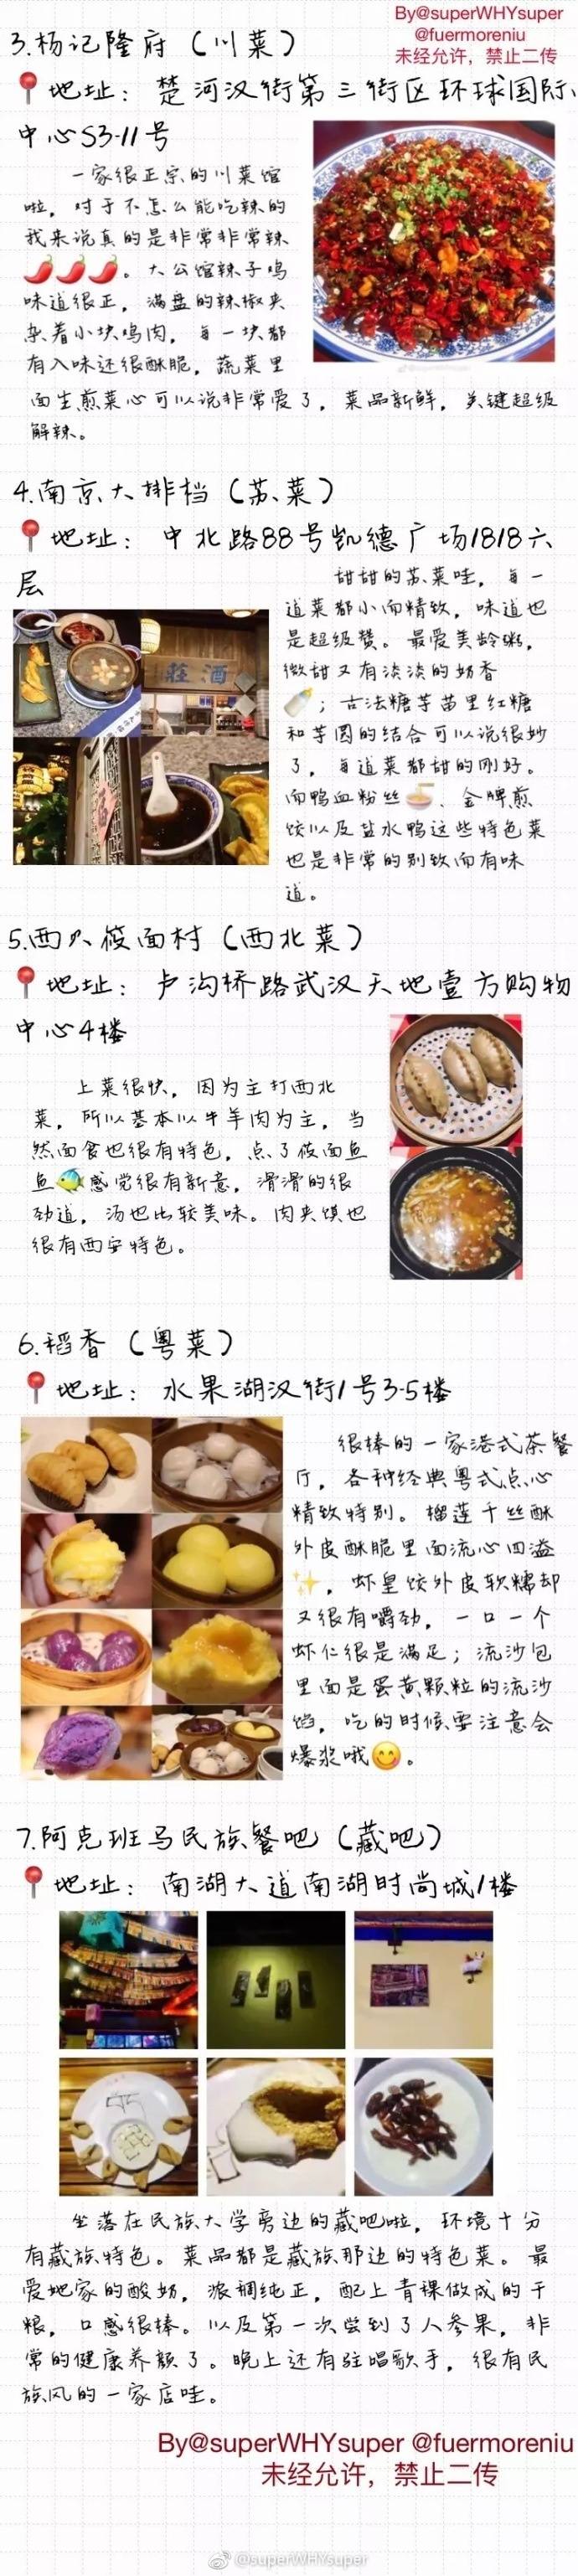 By@superWHYsuper
@fuermoreniu
未经允许，禁止二传
3.杨记隆府（川菜）
地址：楚河汉街第三街区环球国际
中心S3-11号
一家很正宗的川菜馆
啦，对于不怎么能吃辣的
我来说真的是非常非常辣
🌶🌶🌶。大公馆辣子鸡
味道很正，满盘的辣椒夹
杂着小块鸡肉，每一块都
有入味还很酥脆，蔬菜里
面生煎菜心可以说非常爱了，菜品新鲜，关键超级
解辣。
4.南京大排档（苏菜）
地址：中北路88号凯德广场1818六
层
甜甜的苏菜哇，每一
道菜都小而精致，味道也
是超级赞。最爱美龄粥，
微甜又有淡淡的奶香
🍼；古法糖芋苗里红糖
和芋圆的结合可以说很妙
了，每道菜都甜的刚好。
而鸭血粉丝🍜、金牌煎
饺以及盐水鸭这些特色菜
也是非常的别致而有味
道。
酒莊
5.西贝莜面村（西北菜）
地址：卢沟桥路武汉天地壹方购物
中心4楼
上菜很快，因为主打西北
菜，所以基本以牛羊肉为主，当
然面食也很有特色，点了莜面鱼
鱼🐠感觉很有新意，滑滑的很
劲道，汤也比较美味。肉夹馍也
很有西安特色。
6.稻香（粤菜）
地址：水果湖汉街1号3-5楼
很棒的一家港式茶餐
厅，各种经典粤式点心
精致特别。榴莲千丝酥
外皮酥脆里面流心四溢
✨，虾皇饺外皮软糯却
又很有嚼劲，一口一个
虾仁很是满足；流沙包
里面是蛋黄颗粒的流沙
馅，吃的时候要注意会
爆浆哦😋。
7.阿克班马民族餐吧（藏吧）
地址：南湖大道南湖时尚城1楼
坐落在民族大学旁边的藏吧啦，环境十分
有藏族特色。菜品都是藏族那边的特色菜。最
爱她家的酸奶，浓稠纯正，配上青稞做成的干
粮，口感很棒。以及第一次尝到了人参果，非
常的健康养颜了。晚上还有驻唱歌手，很有民
族风的一家店哇。
By@superWHYsuper @fuermoreniu
未经允许，禁止二传
@superWHYsuper